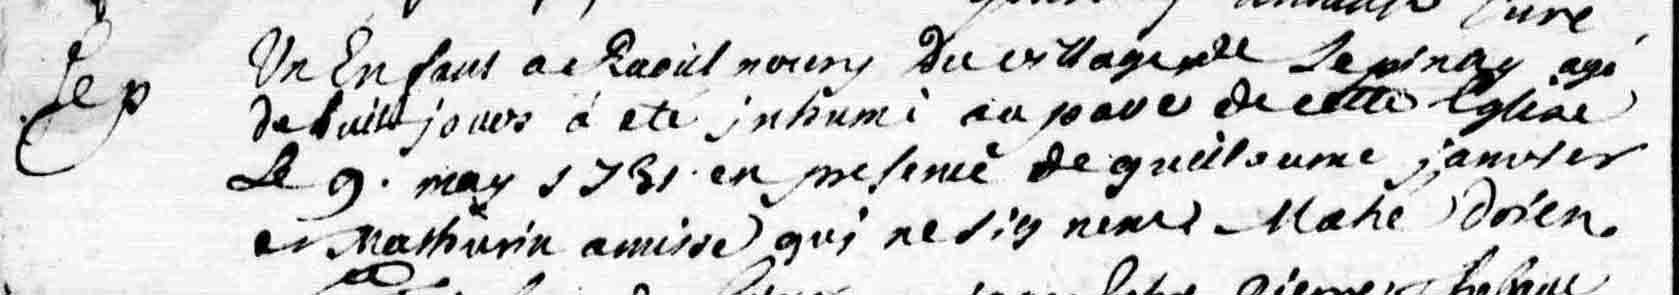 curé
Sep
Un Enfant de Raoul noury Du village de Lepinay agé
de huit jours à eté jnhumé au pavé de cette Eglise
Le 9. may 1731. en presence de guillaume janvier
et Mathurin amisse qui ne signent Mahé doien.